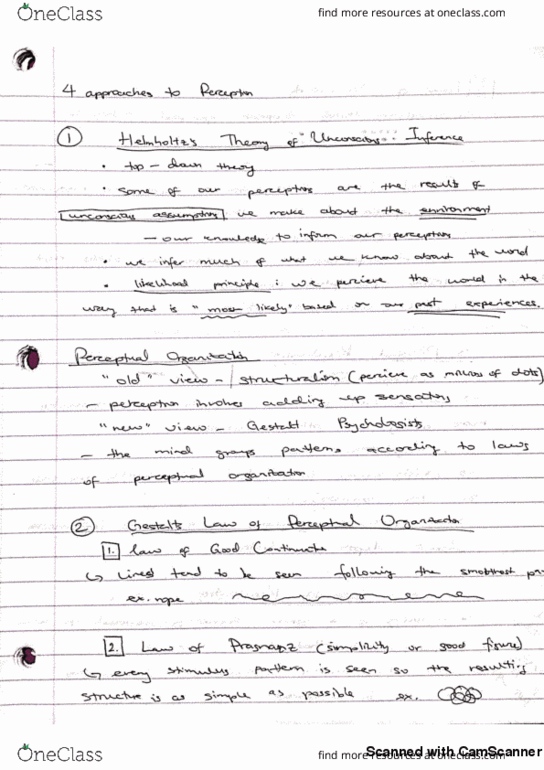 OneClass
find more resources at oneclass.com
4 approaches to Perception
1 Helmholtz's Theory of "Unconscious" Inference
• top-down theory
• some of our perceptions are the results of
unconscious assumptions we make about the environment
- our knowledge to inform our perceptions
• we infer much of what we know about the world
• likelihood principle : we percieve the world in the
way that is "most likely" based on our past experiences.
Perceptual Organization
"old" view - structuralism (percieve as millions of dots)
- perception involves adding up sensations
"new" view - Gestalt Psychologists
- the mind groups patterns according to laws
of perceptual organization
2 Gestalt's Law of Perceptual Organization
1. Law of Good Continuation
↳ lines tend to be seen following the smoothest
ex. rope
2. Law of Pragnanz (simplicity or good figure)
↳ every stimulus pattern is seen so the resulting
structure is as simple as possible ex.
OneClass
find more resources at oneclass.com
Scanned with CamScanner